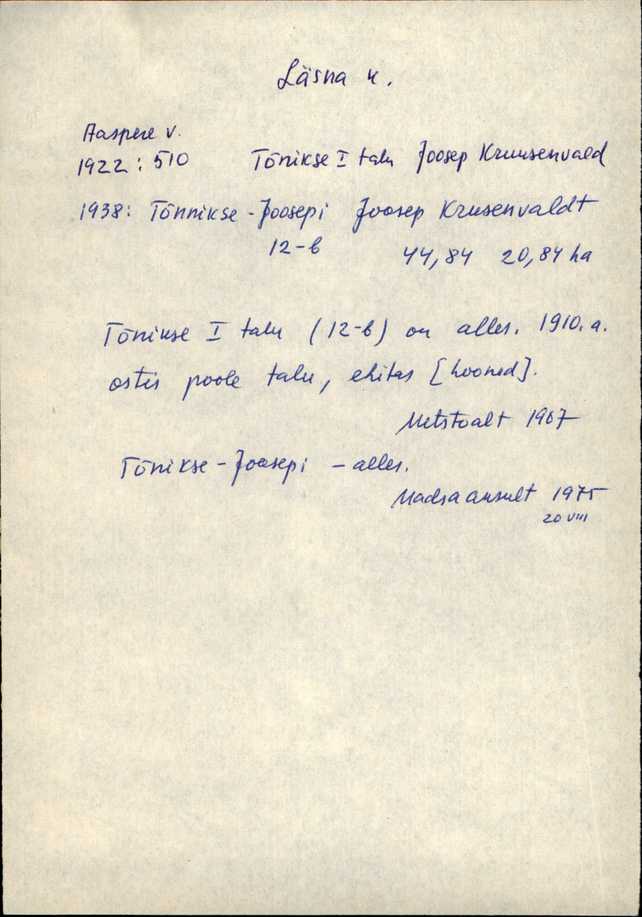 Läsna k.
Aaspere v.
1922: 510 Tõnikse I talu Joosep Kruusenvald
1938: Tõnnikse-Joosepi Joosep Krusenvaldt
12-b 44,84 20,84 ha
Tõnikse I talu (12-b) on alles. 1910. a.
ostis poole talu, ehitas [hooned].
Metstoalt 1967
Tõnikse-Joosepi - alles.
1975
20 VIII